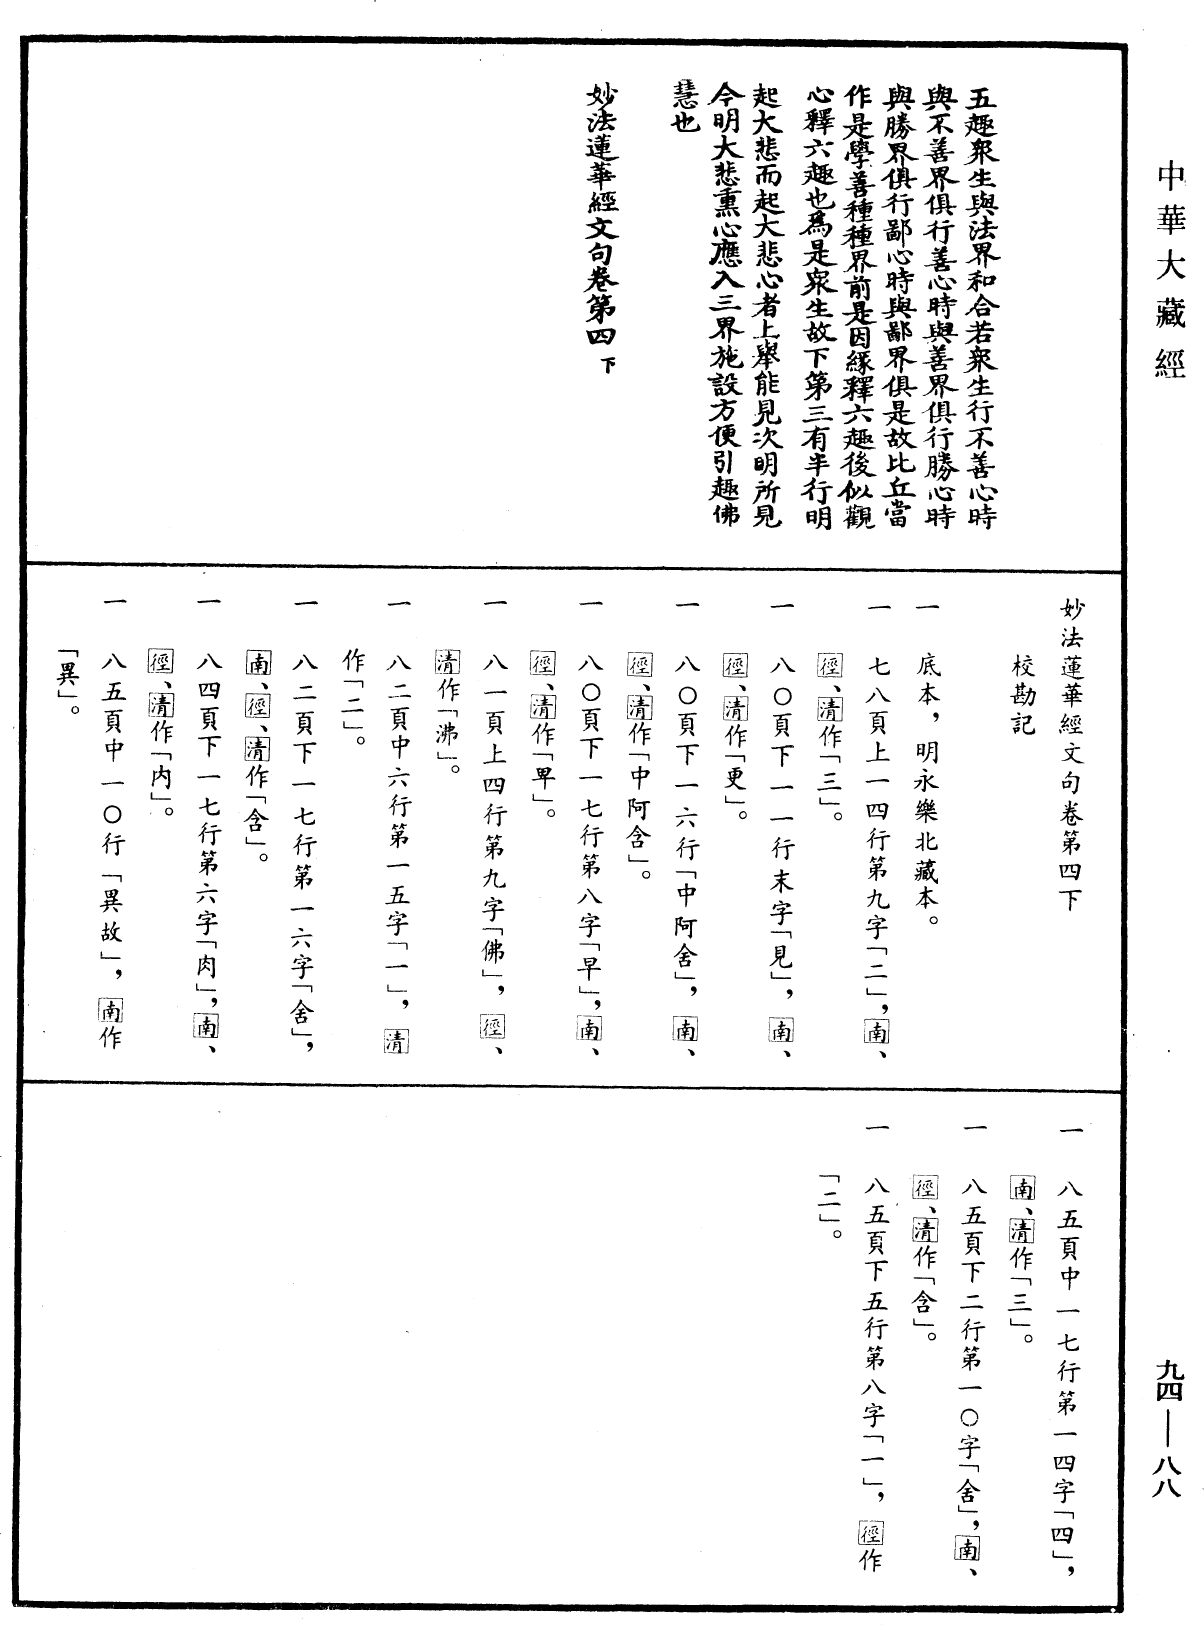 中華大藏經
五趣衆生與法界和合若衆生行不善心時
與不善界俱行善心時與善界俱行勝心時
與勝界俱行鄙心時與鄙界俱是故比丘當
作是學善種種界前是因緣釋六趣後似觀
心釋六趣也爲是衆生故下第三有半行明
起大悲而起大悲心者上舉能見次明所見
今明大悲熏心應入三界施設方便引趣佛
慧也
妙法蓮華經文句卷第四下
妙法蓮華經文句卷第四下
校勘記
一 底本,明永樂北藏本。
一 七八頁上一四行第九字「二」,南、
徑、清作「三」。
一 八〇頁下一一行末字「見」,南、
徑、清作「更」。
一 八〇頁下一六行「中阿舍」,南、
徑、清作「中阿含」。
一 八〇頁下一七行第八字「早」,南、
徑、清作「畢」。
一 八一頁上四行第九字「佛」,徑、
清作「沸」。
一 八二頁中六行第一五字「一」,清
作「二」。
一 八二頁下一七行第一六字「舍」,
南、徑、清作「含」。
一 八四頁下一七行第六字「肉」,南、
徑、清作「内」。
一 八五頁中一〇行「異故」,南作
「異」。
一 八五頁中一七行第一四字「四」,
南、清作「三」。
一 八五頁下二行第一〇字「舍」,南、
徑、清作「含」。
一 八五頁下五行第八字「一」,徑作
「二」。
九四—八八